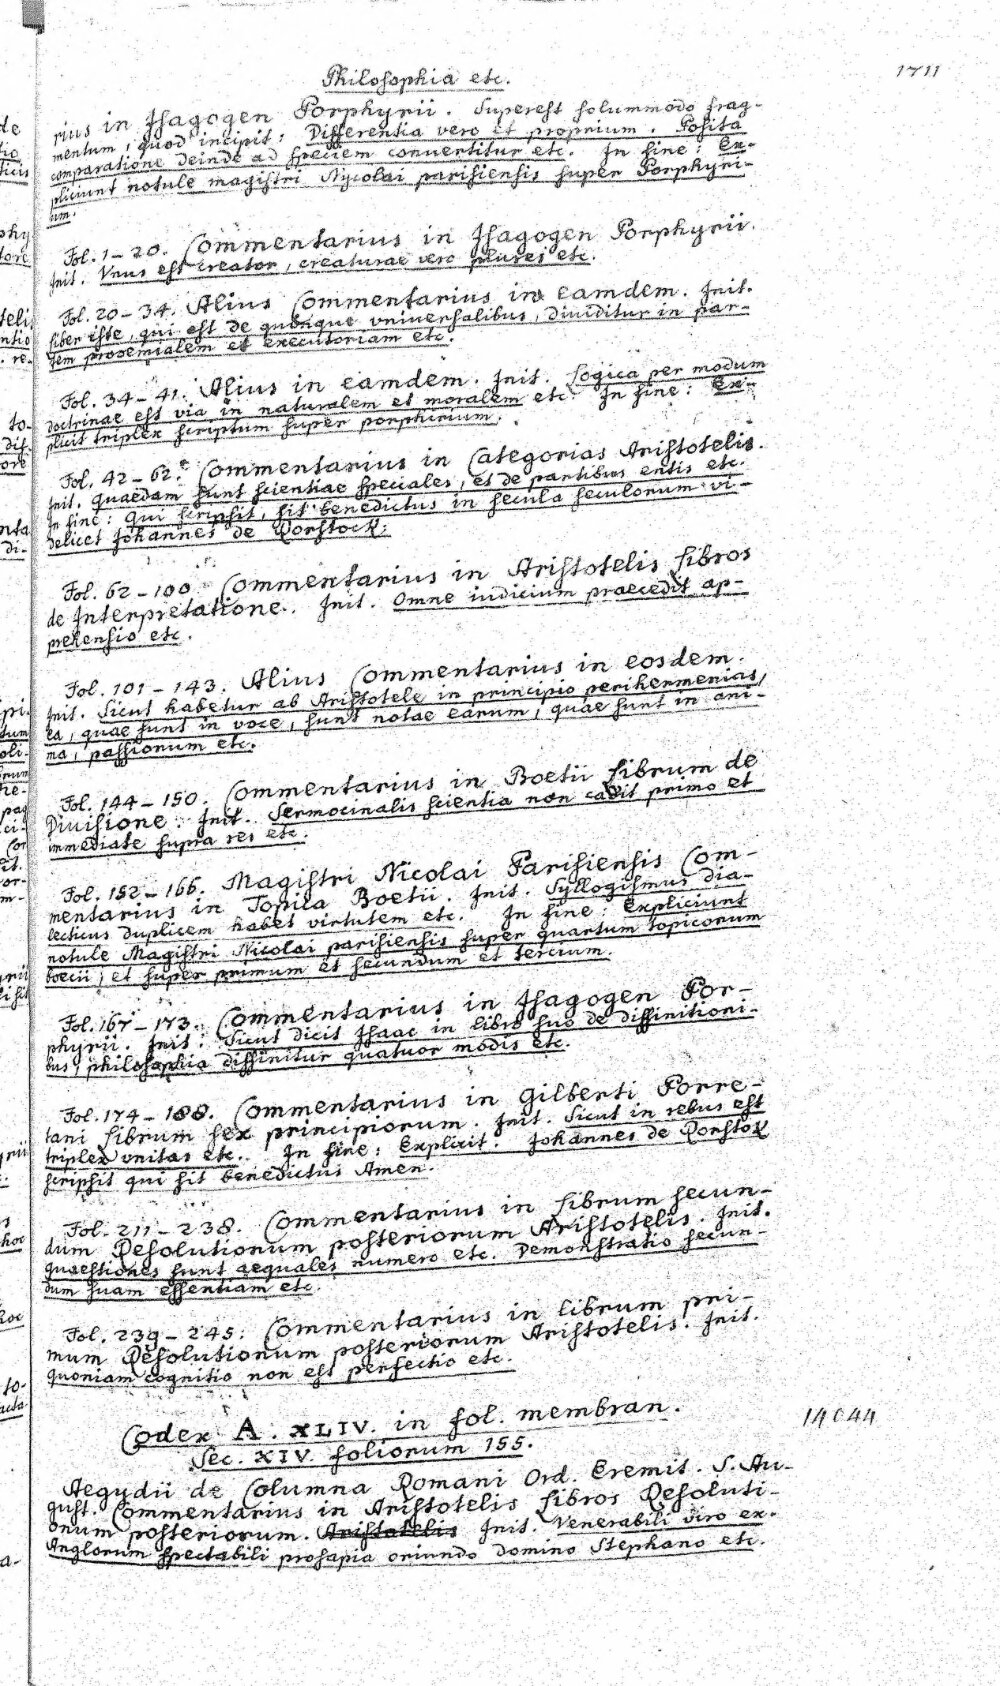 1711
Philosophia etc.
rius in Isagogen Porphyrii. Superest solummodo frag-
mentum, quod incipit: Differentia vero et proprium. Posita
comparatione deinde ad speciem convertitur etc. In fine: Ex-
pliciunt notule magistri Nycolai parisiensis super Porphyri-
um.
Fol. 1-20. Commentarius in Isagogen Porphyrii.
Init. Unus est creator, creaturae vero plures etc.
Fol. 20-34. Alius Commentarius in eamdem. Init.
Liber iste, qui est de quinque universalibus, dividitur in par-
tem prooemialem et executoriam etc.
Fol. 34-41. Alius in eamdem. Init. Logica per modum
doctrinae est via in naturalem et moralem etc. In fine: Ex-
plicit triplex scriptum super porphirium.
Fol. 42-62. Commentarius in Categorias Aristotelis.
Init. quaedam sunt scientiae speciales, et de partibus entis etc.
In fine: Qui scripsit, sit benedictus in secula seculorum vi-
delicet Johannes de Rorstock.
Fol. 62-100. Commentarius in Aristotelis Libros
de Interpretatione. Init. Omne iudicium praecedit ap-
prehensio etc.
Fol. 101-143. Alius Commentarius in eosdem.
Init. Sicut habetur ab Aristotele in principio perihermenias,
ea, quae sunt in voce, sunt notae earum, quae sunt in ani-
ma, passionum etc.
Fol. 144-150. Commentarius in Boetii Librum de
Divisione. Init. Sermocinalis scientia non cadit primo et
immediate supra res etc.
Fol. 152-166. Magistri Nicolai Parisiensis Com-
mentarius in Topica Boetii. Init. Syllogismus dia-
lecticus duplicem habet virtutem etc. In fine: Expliciunt
notule Magistri Nicolai parisiensis super quartum topicorum
boecii, et super primum et secundum et tercium.
Fol. 167-173. Commentarius in Isagogen Por-
phyrii. Init. Sicut dicit Isaac in libro suo de diffinitioni-
bus, philosophia diffinitur quatuor modis etc.
Fol. 174-188. Commentarius in Gilberti Porre-
tani Librum sex principiorum. Init. Sicut in rebus est
triplex unitas etc. In fine: Explicit. Johannes de Rorstok
scripsit qui sit benedictus Amen.
Fol. 211-238. Commentarius in Librum secun-
dum Resolutionum posteriorum Aristotelis. Init.
quaestiones sunt aequales numero etc. Demonstratio secun-
dum suam essentiam etc.
Fol. 239-245. Commentarius in librum pri-
mum Resolutionum posteriorum Aristotelis. Init.
quoniam cognitio non est perfectio etc.
Codex A. XLIV. in fol. membran.
14044
Sec. XIV. foliorum 155.
Aegydii de Columna Romani Ord. Eremit. S. Au-
gust. Commentarius in Aristotelis Libros Resoluti-
onum posteriorum. Aristotelis Init. Venerabili viro ex.
Anglorum spectabili prosapia oriundo domino Stephano etc.